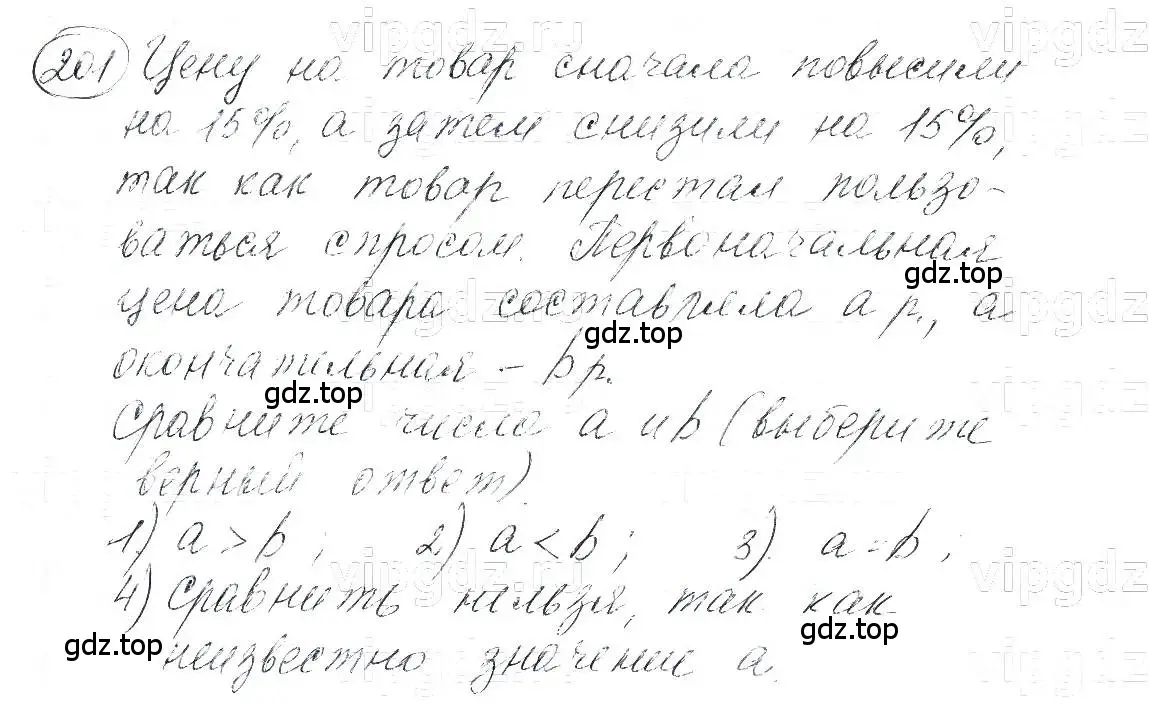 201 Цену на товар сначала повысили
на 15%, а затем снизили на 15%,
так как товар перестал пользо-
ваться спросом. Первоначальная
цена товара составляла a р., а
окончательная - b р.
Сравните числа a и b (выберите
верный ответ).
1) a > b ; 2) a < b ; 3). a = b ;
4) Сравнить нельзя, так как
неизвестно значение a.
vipgdz.ru
vipgdz
gdz.top
gdz.top
gdz.top
gdz.top
gdz.top